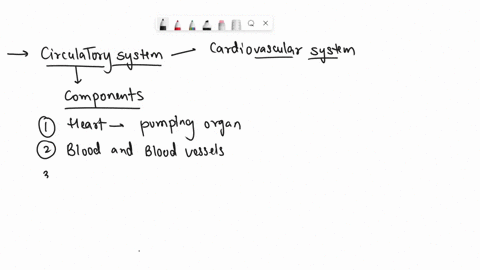 → Circulatory system — Cardiovascular system
↓
Components
① Heart → pumping organ
② Blood and Blood vessels
3